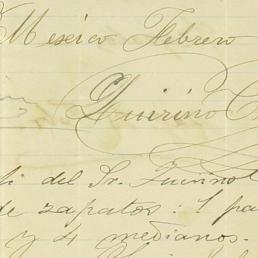 Mexico Febrero
Quirino C
del Sr. Quirino
de zapatos: 1 pa
y 4 medianos.